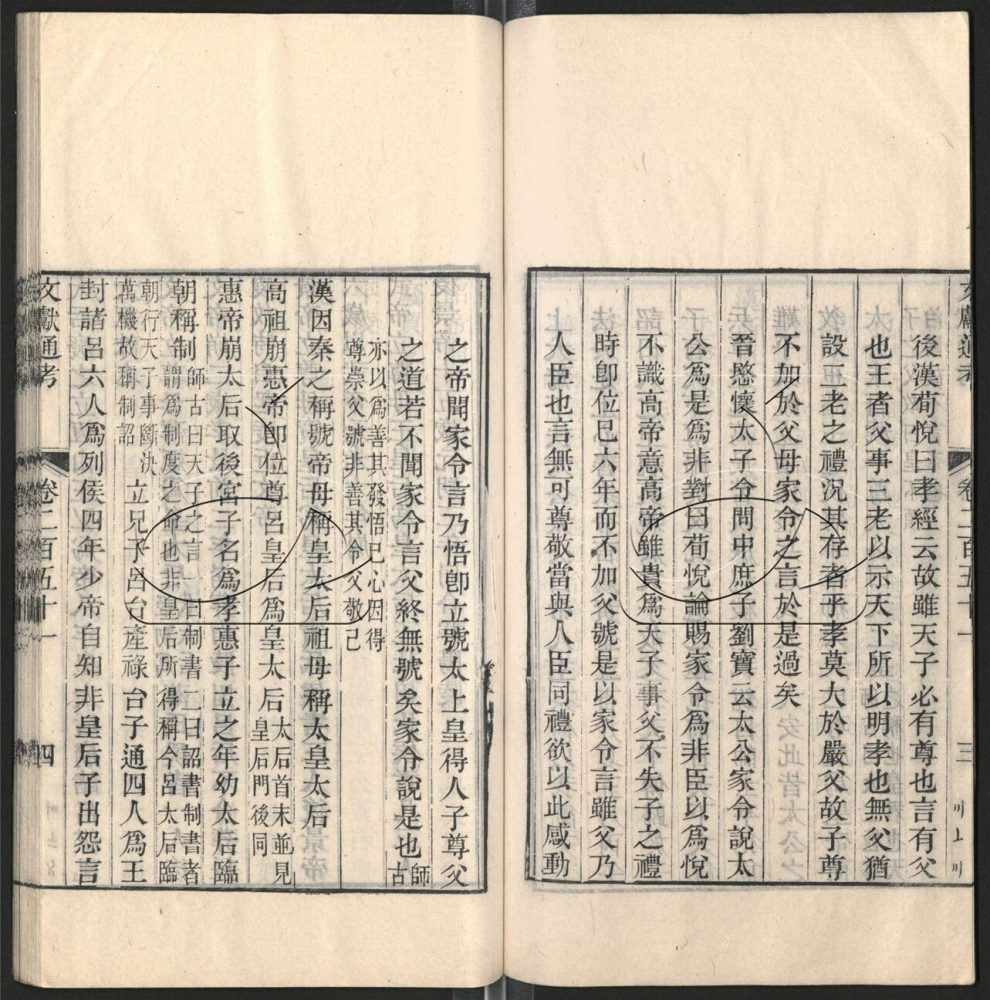 後漢荀悅曰孝經云故雖天子必有尊也言有父
也王者父事三老以示天下所以明孝也無父猶
設三老之禮況其存者乎孝莫大於嚴父故子尊
不加於父母家令之言於是過矣
晉愍懷太子令問中庶子劉寶云太公家令說太
公爲是爲非對曰荀悅論賜家令爲非臣以爲悅
不識高帝意高帝雖貴爲天子事父不失子之禮
時卽位已六年而不加父號是以家令言雖父乃
人臣也言無可尊敬當與人臣同禮欲以此感動
之帝聞家令言乃悟卽立號太上皇得人子尊父
之道若不聞家令言父終無號矣家令說是也師古
亦以爲善其發悟己心因得
尊崇父號非善其令父敬己
漢因秦之稱號帝母稱皇太后祖母稱太皇太后
高祖崩惠帝卽位尊呂皇后爲皇太后太后首末並見
皇后門後同
惠帝崩太后取後宮子名爲孝惠子立之年幼太后臨
朝稱制師古曰天子之言一曰制書二曰詔書制書者
謂爲制度之命也非皇后所得稱今呂太后臨
朝行天子事斷決
萬機故稱制詔
立兄子呂台產祿台子通四人爲王
封諸呂六人爲列侯四年少帝自知非皇后子出怨言
文獻通考
卷二百五十一
四